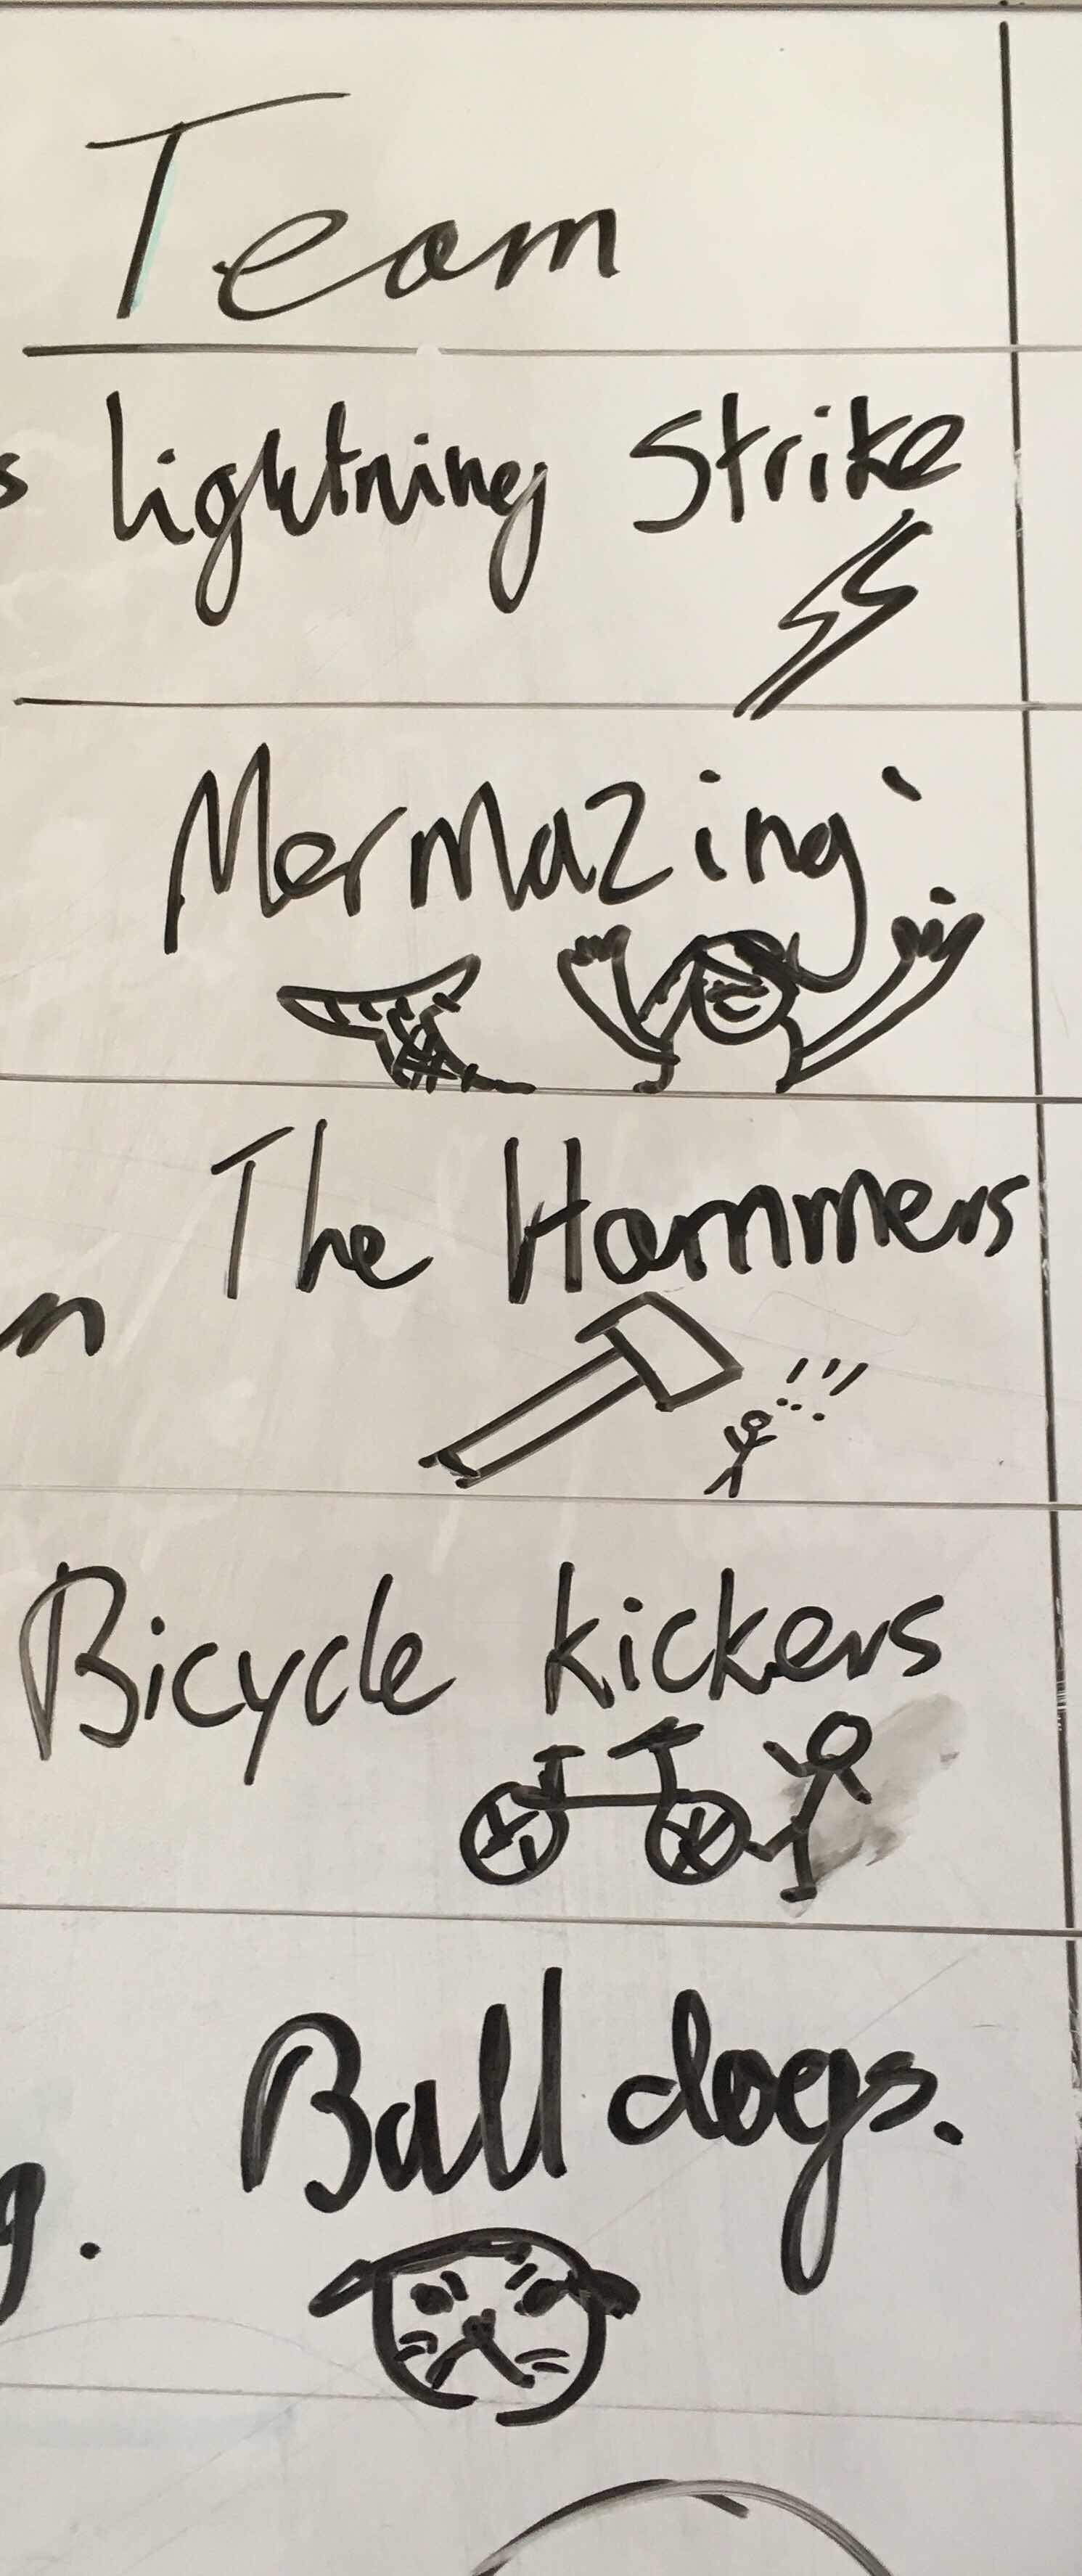 Team
s lightning Strike
Mermazing
The Hammers
n
Bicycle kickers
Ball dogs.
g.